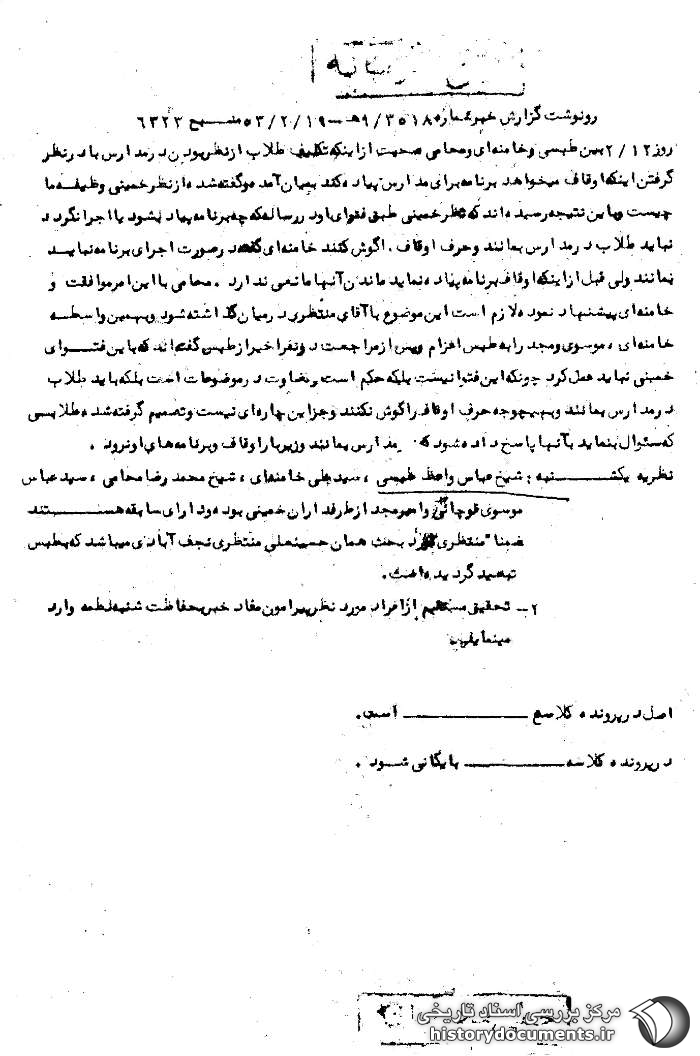 رونوشت گزارش خبر شماره ۹/۳۵۱۸هـ – ۵۳/۲/۱۹ منبع ۶۳۲۳
روز ۲/۱۲ بین طبسی و خامنه‌ای و محامی صحبت از اینکه تکلیف طلاب از نظر بودن در مدارس با در نظر
گرفتن اینکه اوقاف میخواهد برنامه برای مدارس پیاده کند بمیان آمد و گفته شده از نظر خمینی وظیفه ما
چیست و باین نتیجه رسیده‌اند که نظر خمینی طبق فتوای او در رساله که چه برنامه پیاده بشود یا اجرا نگردد
نباید طلاب در مدارس بمانند و حرف اوقاف را گوش کنند خامنه‌ای گفته در صورت اجرای برنامه نباید
بمانند ولی قبل از اینکه اوقاف برنامه پیاده نماید ماندن آنها مانعی ندارد . محامی با این امر موافقت و
خامنه‌ای پیشنهاد نموده لازم است این موضوع با آقای منتظری در میان گذاشته شود و بهمین واسطه
خامنه‌ای ، موسوی و مجد را به طبس اعزام و پس از مراجعت دو نفر اخیر از طبس گفته‌اند که باین فتوای
خمینی نباید عمل کرد چونکه این فتوا نیست بلکه حکم است و قضاوت در موضوعات است بلکه باید طلاب
در مدارس بمانند و بهیچوجه حرف اوقاف را گوش نکنند و جز این چاره‌ای نیست و تصمیم گرفته شده طلابی
که سئوال بنماید بآنها پاسخ داده شود که در مدارس بمانند و زیر بار اوقاف و برنامه‌های او نرود .
نظریه یکشنبه : شیخ عباس واعظ طبسی ، سید علی خامنه‌ای ، شیخ محمد رضا محامی ، سید عباس
موسوی قوچانی و امیر مجد از طرفداران خمینی بوده و دارای سابقه هستند
ضمنا" منتظری مورد بحث همان حسینعلی منتظری نجف آبادی میباشد که بطبس
تبعید گردیده است.
۲ – تحقیق مستقیم از افراد مورد نظر پیرامون مفاد خبر بحفاظت شنبه لطمه وارد
مینماید.
اصل در پرونده کلاسه ــــــــــ است.
در پرونده کلاسه ــــــــــ بایگانی شود .
مرکز بررسی اسناد تاریخی
historydocuments.ir